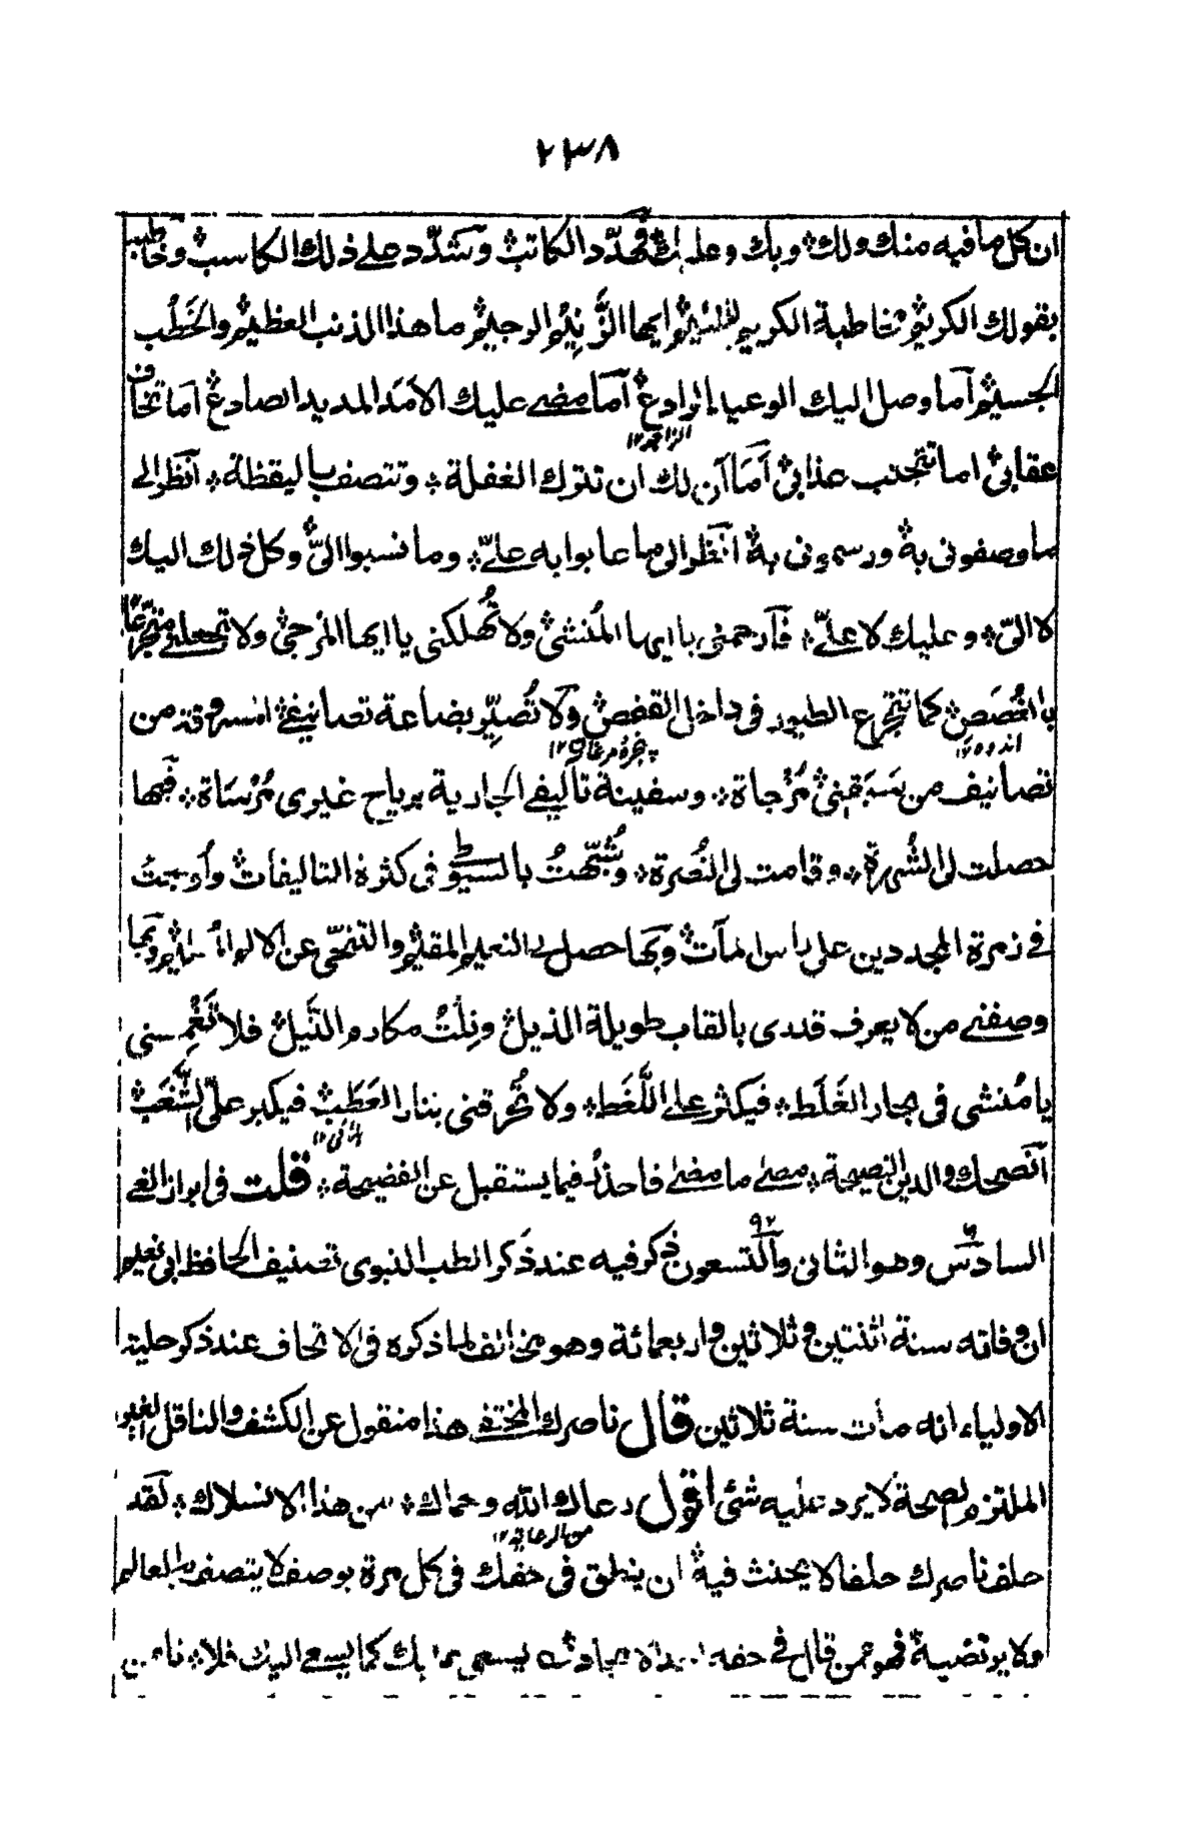 ٢٣٨
ان كل ما فيه منك ولك وبك وعليك فهدّد الكاتب وشدّد على ذلك الكاسب وخاطبه
بقولك الكريم مخاطبة الكريم للئيم ايها الزنيم الرجيم ما هذا الذنب العظيم والخَطْب
الجسيم آما وصل اليك الوعيد الرادع آما مضى عليك الاَمَد المديد الصادع اما تخاف
الزاجر١٢
عقابى اما تتجنب عذابى آمَا آن لك ان تترك الغفلة وتتصف باليقظة انظر الى
ما وصفونى به ورسمونى به انظر الى ما عابوا به علىّ وما نسبوا الىّ وكل ذلك اليك
لا الىّ وعليك لا علىّ فآرحمنى يا ايها المُنشى ولا تُهلكنى يا ايها المُزجى ولا تجعلنى متجرّعًا
بالغُصَص كما تتجرع الطيور فى داخل القفص ولا تُصيّر بضاعة تصانيفى المسروقة من
اندوه١٢ پنجرهٔ مرغان١٢
تصانيف من سَبَقنى مُزْجاة وسفينة تأليفى الجارية برياح غيرى مُرْسَاة فبها
حصلت لى الشُهرة وقامت لى النُصرة وشُبّهتُ بالسيوطى فى كثرة التاليفات وأُدرجتُ
فى زمرة المجددين على راس المآت وبها حصل لى النعيم المقيم والتنحّى عن الالم وبها
وصفنى من لا يعرف قدرى بالقاب طويلة الذيل ونِلتُ مكارم النَّيل فلا تَغْمِسنى
يا مُنشى فى بحار الغَلَط فيكثر على اللَّغَط ولا تُحرقنى بنار العَطَب فيكبر علىّ الشَّغَب
آنصحك والدين النصيحة مضى ما مضى فاحذر فيما يستقبل عن الفضيحة قلت فى ابراز الغى
السادس وهو الثانى وآلتسعون ذكر فيه عند ذكر الطب النبوى تصنيف الحافظ ابى نعيم
٩٢
ان وفاته سنة اثنتين وثلاثين واربعمائة وهو مخالف لما ذكره فى الاتحاف عند ذكر حلية
الاولياء انه مات سنة ثلاثين قال ناصرك المختفى هذا منقول عن الكشف والناقل الغير
الملتزم لصحة لا يرد عليه شئ اقول رعاك الله وحماك من هذا الانسلاك لقد
من الرعاية١٢
حلف ناصرك حلفا لا يحنث فيه ان ينطق فى حقك فى كل مرة بوصف لا يتصف به العالم
ولا يرتضيه فهو ممن قال فى حقه يسعى بك كما يسعى اليك فلا